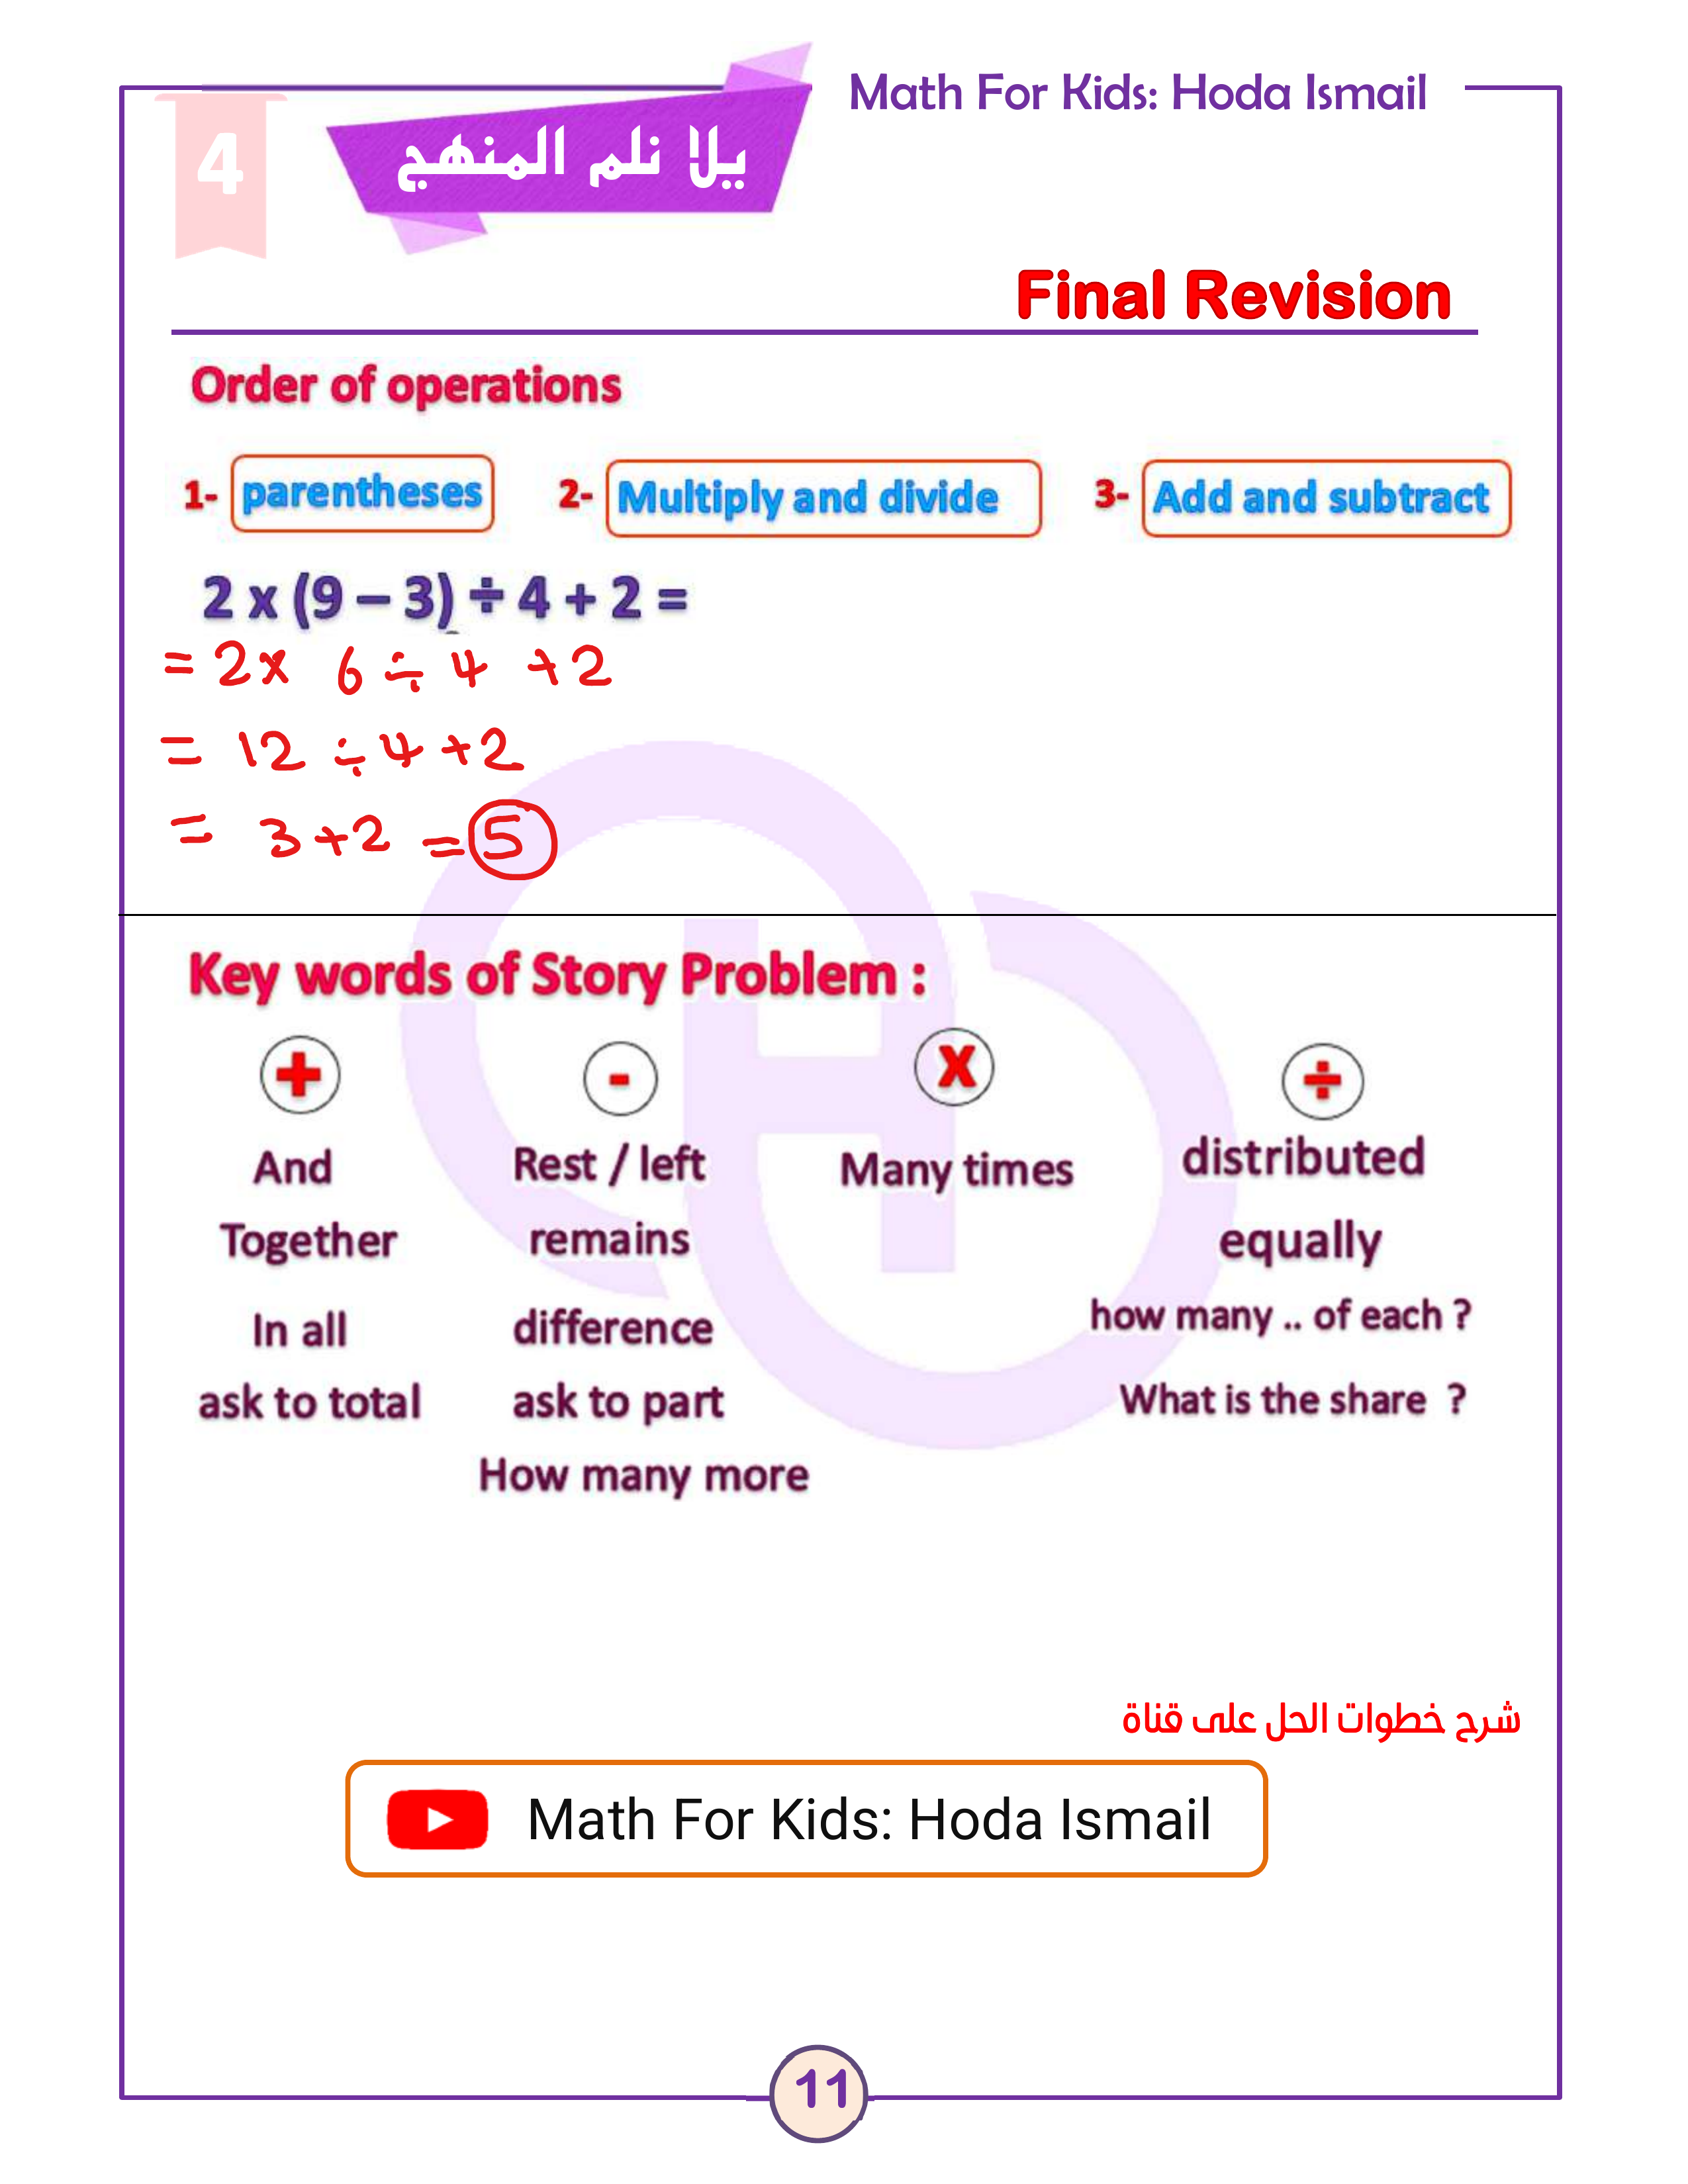 Math For Kids: Hoda Ismail
4
يلا نلم المنهج
Final Revision
Order of operations
1- parentheses 2- Multiply and divide 3- Add and subtract
2 x (9 – 3) ÷ 4 + 2 =
= 2 x 6 ÷ 4 + 2
= 12 ÷ 4 + 2
= 3 + 2 = 5
Key words of Story Problem :
+ - X ÷
And Rest / left Many times distributed
Together remains equally
In all difference how many .. of each ?
ask to total ask to part What is the share ?
How many more
شرح خطوات الحل على قناة
Math For Kids: Hoda Ismail
11